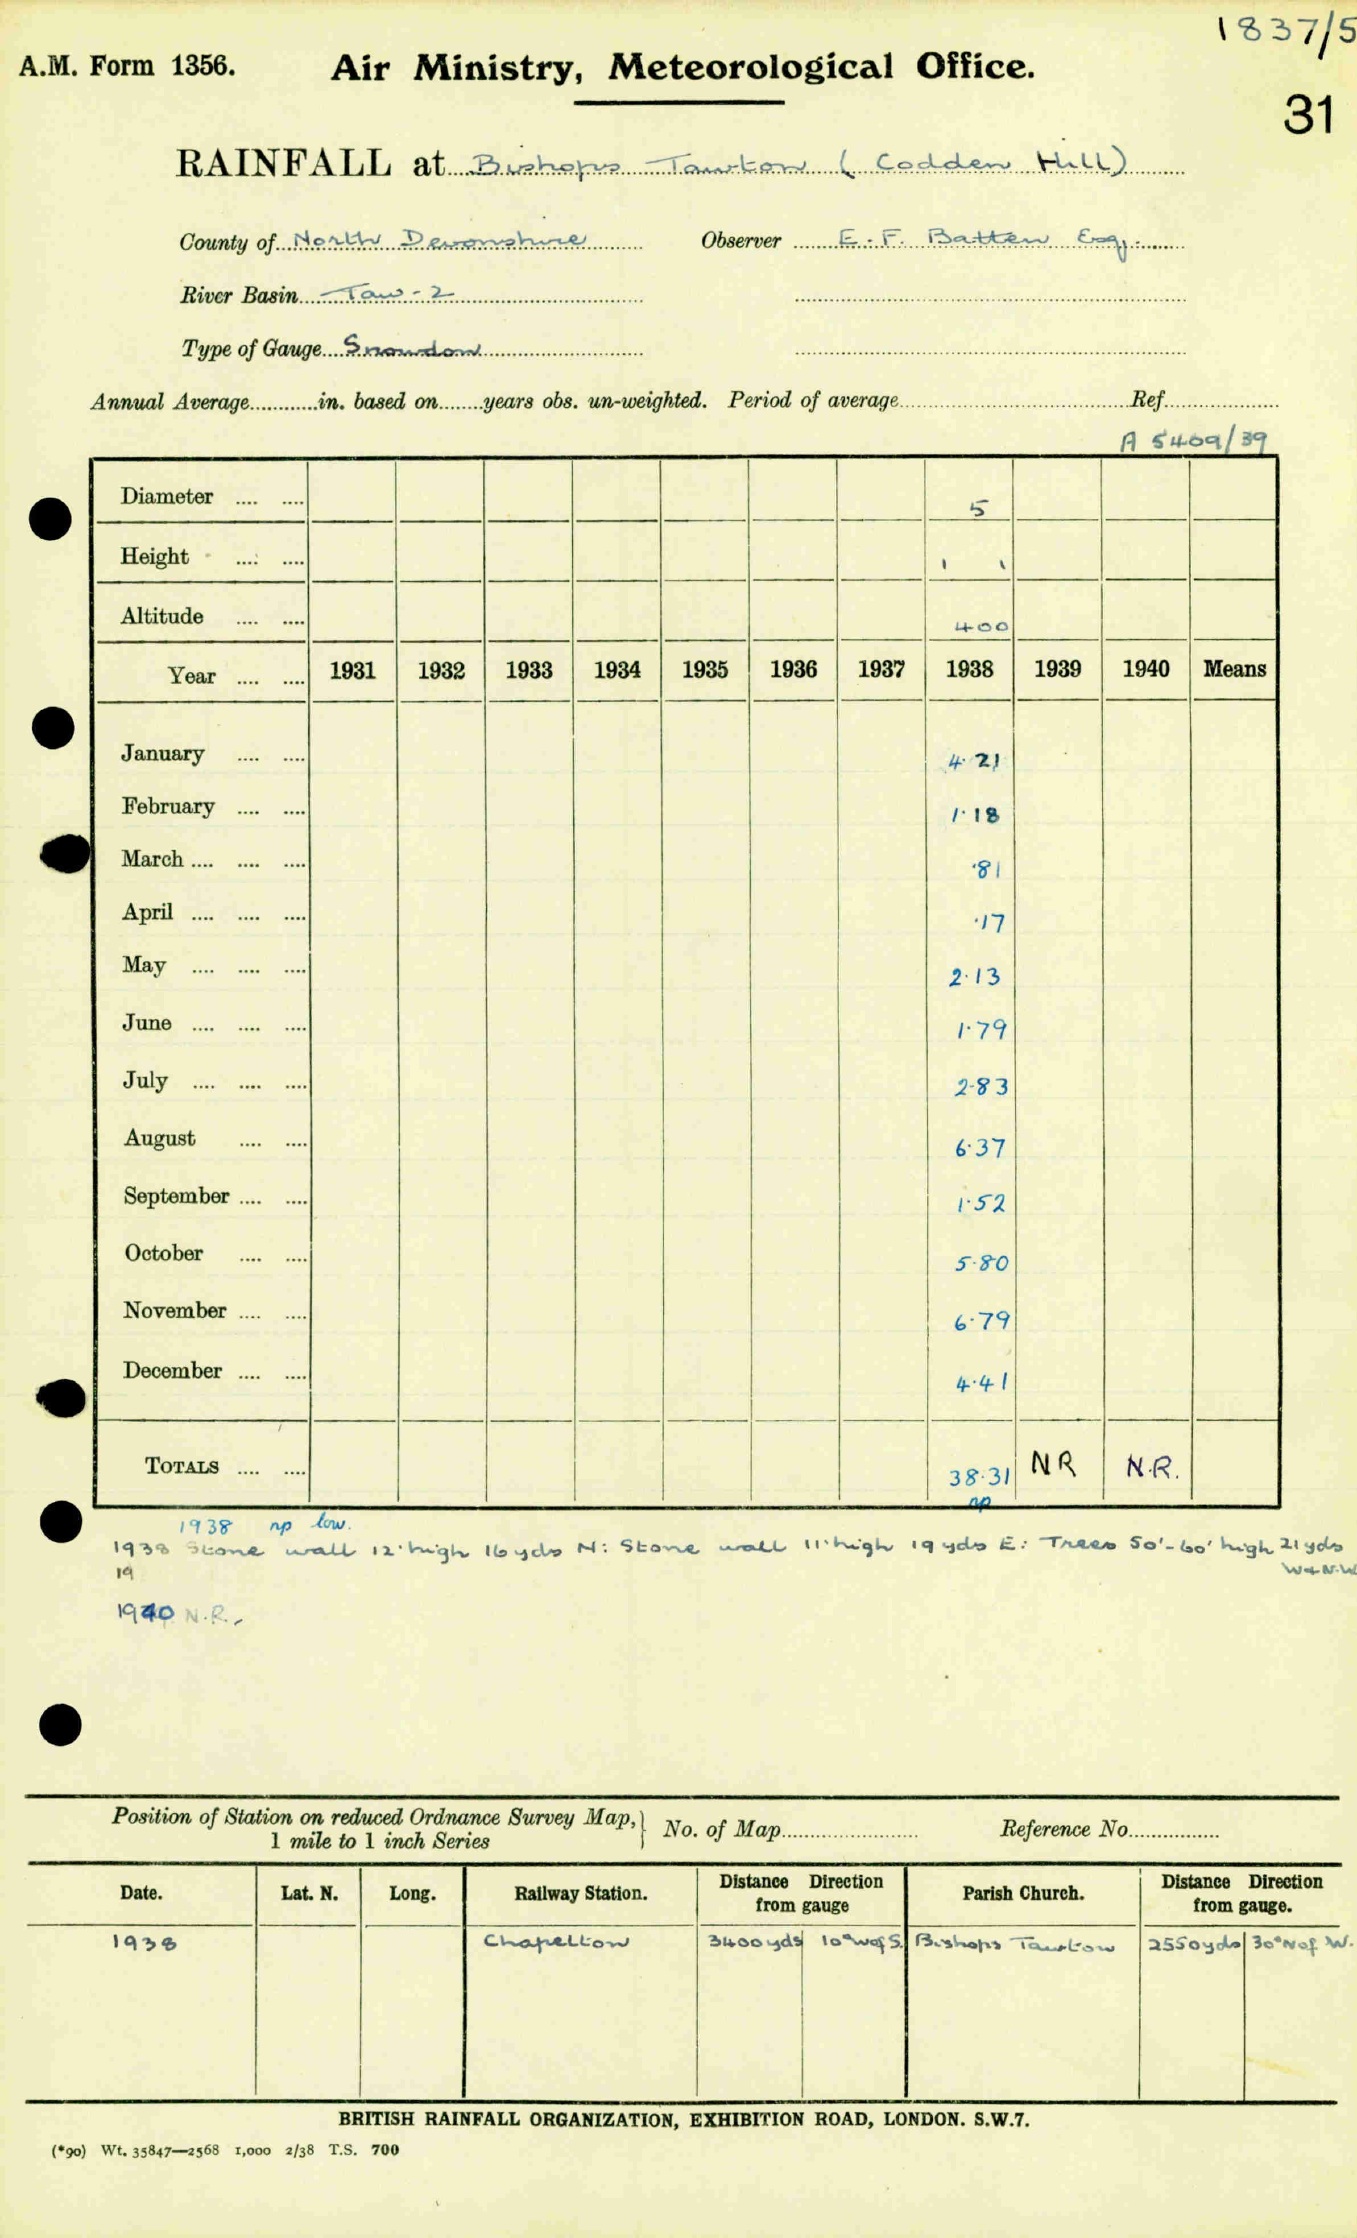 1837/5
A.M. Form 1356. Air Ministry, Meteorological Office.
31
RAINFALL at Bishops Tawton (Codden Hill)
County of North Devonshire Observer E. F. Batten Esq.
River Basin Taw-2
Type of Gauge Snowdon
Annual Average............in. based on........years obs. un-weighted. Period of average............Ref............
A 5409/39
Diameter .... .... 5
Height .... .... 1 1
Altitude .... .... 400
Year .... .... 1931 1932 1933 1934 1935 1936 1937 1938 1939 1940 Means
January .... .... 4.21
February .... .... 1.18
March .... .... .... .81
April .... .... .... .17
May .... .... .... 2.13
June .... .... .... 1.79
July .... .... .... 2.83
August .... .... 6.37
September .... .... 1.52
October .... .... 5.80
November .... .... 6.79
December .... .... 4.41
TOTALS .... .... 38.31 NR N.R.
np
1938 np low.
1938 Stone wall 12' high 16 yds N: Stone wall 11' high 19 yds E: Trees 50'-60' high 21 yds
W & N.W
19
1940 N.R.
Position of Station on reduced Ordnance Survey Map, } No. of Map............ Reference No............
1 mile to 1 inch Series
Date. Lat. N. Long. Railway Station. Distance Direction from gauge Parish Church. Distance Direction from gauge.
1938 Chapelton 3400 yds 10° W of S. Bishops Tawton 2550 yds 30° N of W.
BRITISH RAINFALL ORGANIZATION, EXHIBITION ROAD, LONDON. S.W.7.
(*90) Wt. 35847—2568 1,000 2/38 T.S. 700